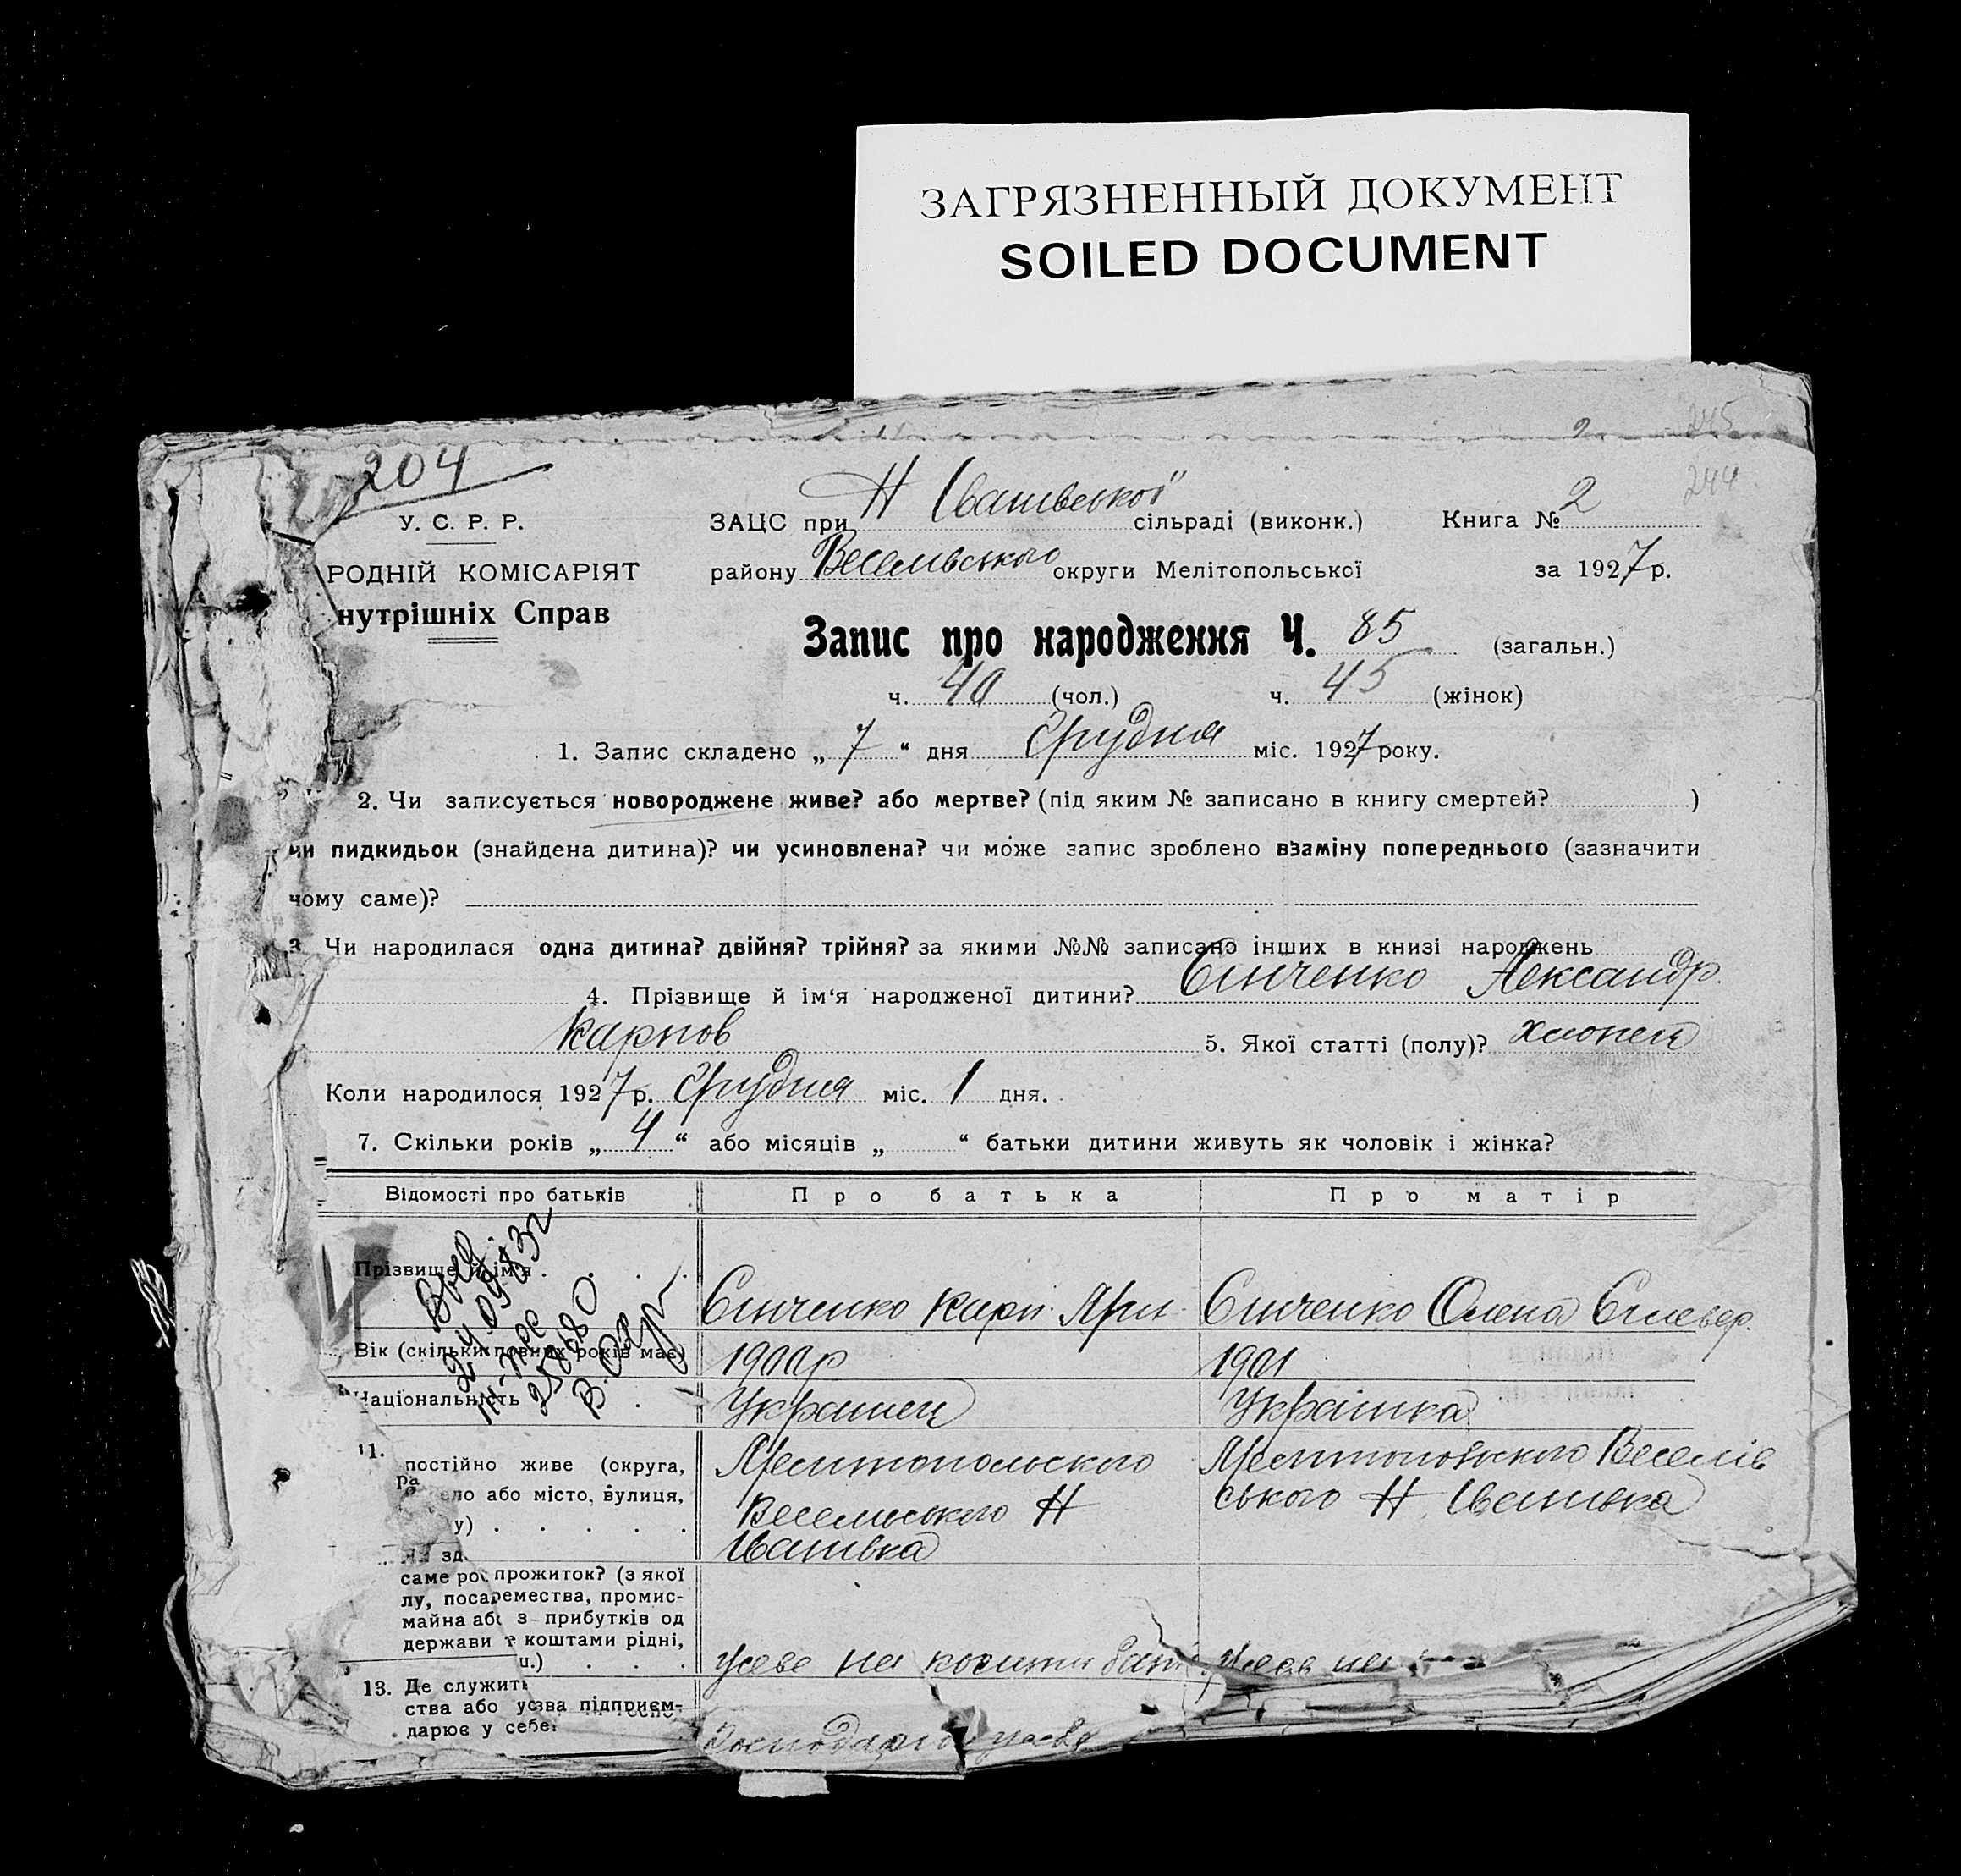 ЗАГРЯЗНЕННЫЙ ДОКУМЕНТ
SOILED DOCUMENT
245
204
244
У. С. Р. Р.
ЗАЦС при Н Іванівської сільраді (виконк.) Книга № 2
РОДНІЙ КОМІСАРІЯТ
району Веселівського округи Мелітопольської за 1927 р.
нутрішніх Справ
Запис про народження Ч. 85 (загальн.)
ч. 40 (чол.) ч. 45 (жінок)
1. Запис складено „ 7 “ дня Грудня міс. 1927 року.
2. Чи записується новороджене живе? або мертве? (під яким № записано в книгу смертей? )
чи пидкидьок (знайдена дитина)? чи усиновлена? чи може запис зроблено взаміну попереднього (зазначити
чому саме)?
3. Чи народилася одна дитина? двійня? трійня? за якими №№ записано інших в книзі народжень
4. Прізвище й ім‘я народженої дитини? Сінченко Александр.
Карпов 5. Якої статті (полу)? хлопець
Коли народилося 1927 р. Грудня міс. 1 дня.
7. Скільки років „ 4 “ або місяців „ “ батьки дитини живуть як чоловік і жінка?
Відомості про батьків Про батька Про матір
Прізвище й ім‘я Сінченко Карп Сінченко Олена
Вік (скільки повних років має) 1900р 1901
Національність Українец Українка
11. постійно живе (округа, Мелитопольского Веселів
ра село або місто, вулиця, Веселівського Н ського Н Іванивка
у) Иванівка
саме рос прожиток? (з якої
лу, поса ремества, промис-
майна або з прибутків од
держави коштами рідні,
и.) живе на кошти
13. Де служить
ства або у зва підприєм-
дарює у себе Господарює у себе